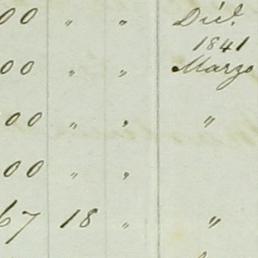 00 " " Dic.
1841
00 " " Marzo
00 " " "
00 " " "
67 18 " "